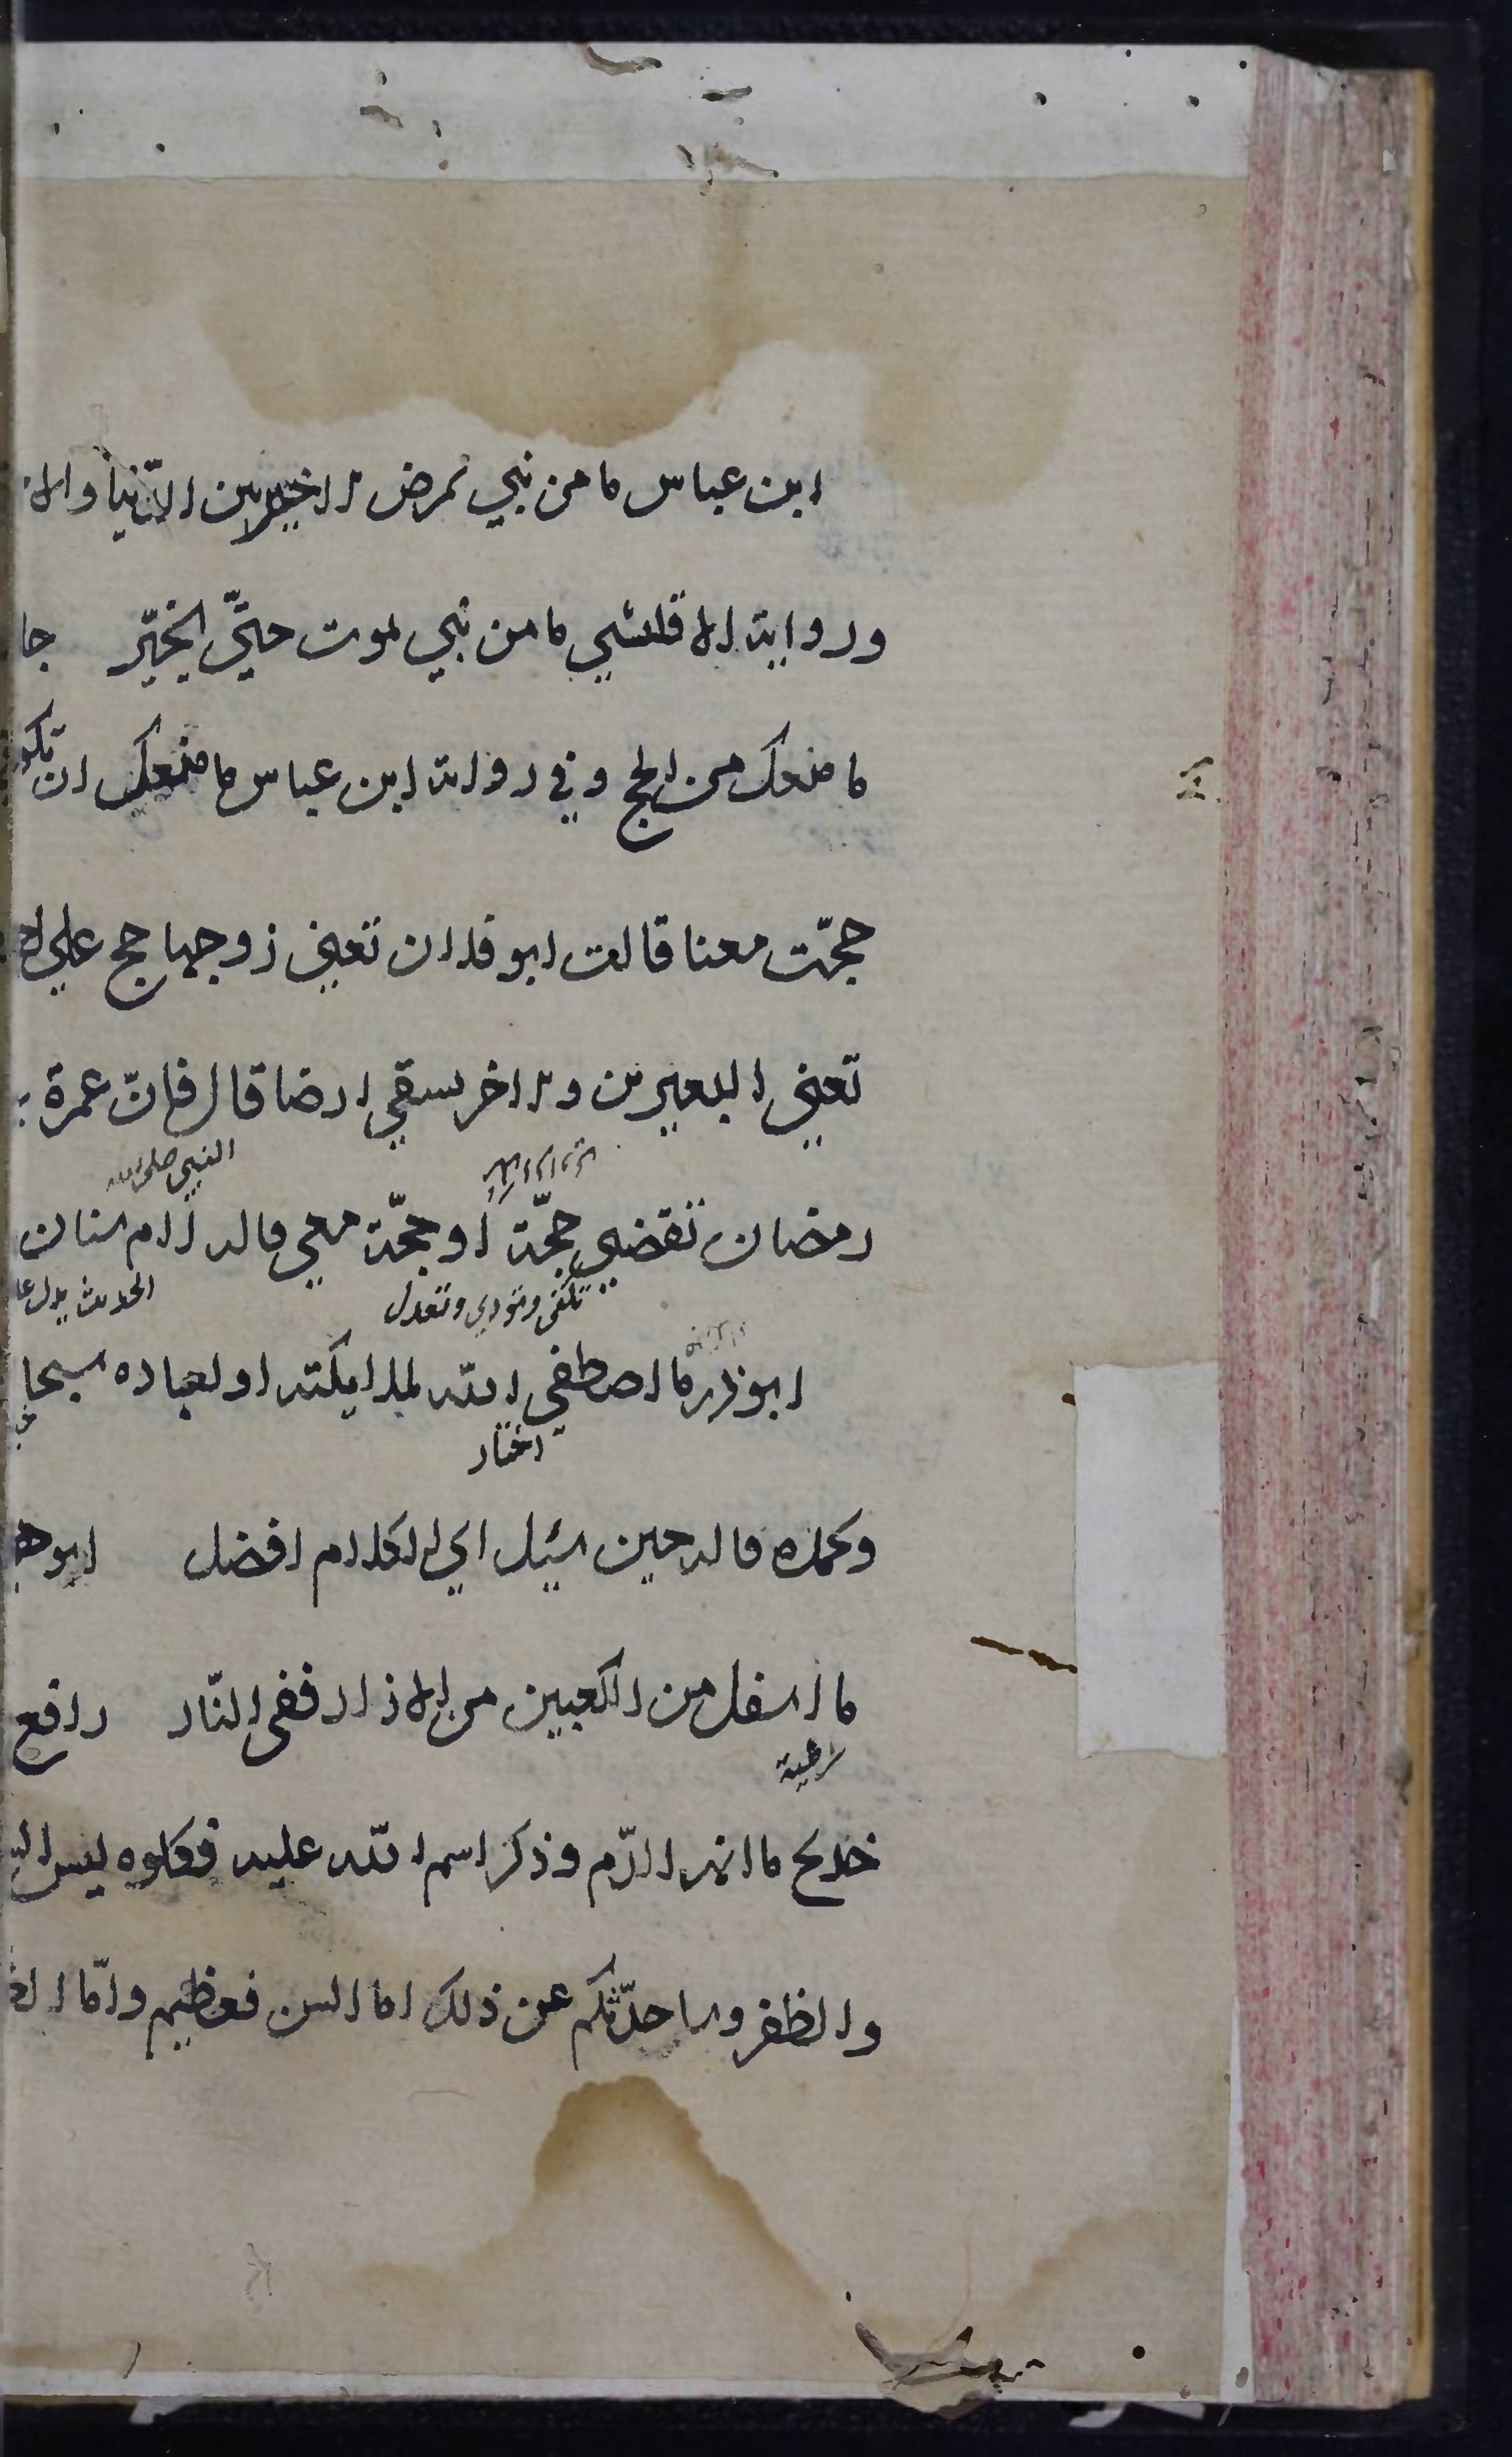 ابن عباس ما من نبي يمرض الا خير بين الدّنيا والا
ورواية الا قلشي ما من نبي يموت حتّى يخيّر جا
ما منعك من الحج وفي رواية ابن عباس ما منعك ان تكو
حججّت معنا قالت ابو فلان تعني زوجها حج علي
تعني البعيرين والاخر يسقي ارضا قال فانّ عمرة
النبي صلى الله
رمضان تقضي حجّة او حجّة معي قاله لام سنان
تكفي وتودي وتعدل
الحديث يدل
ابوذر ما اصطفى الله لملايكته او لعباده سبحا
اختار
وبحمده قاله حين سُيل اي الكلام افضل ابو
ما اسفل من الكعبين من الازار ففى النّار رافع
شرطية
خديج ما انهر الدّم وذكر اسم الله عليه فكلوه ليس
والظفر وساحدّثكم عن ذلك اما السن فعظيم وامّا